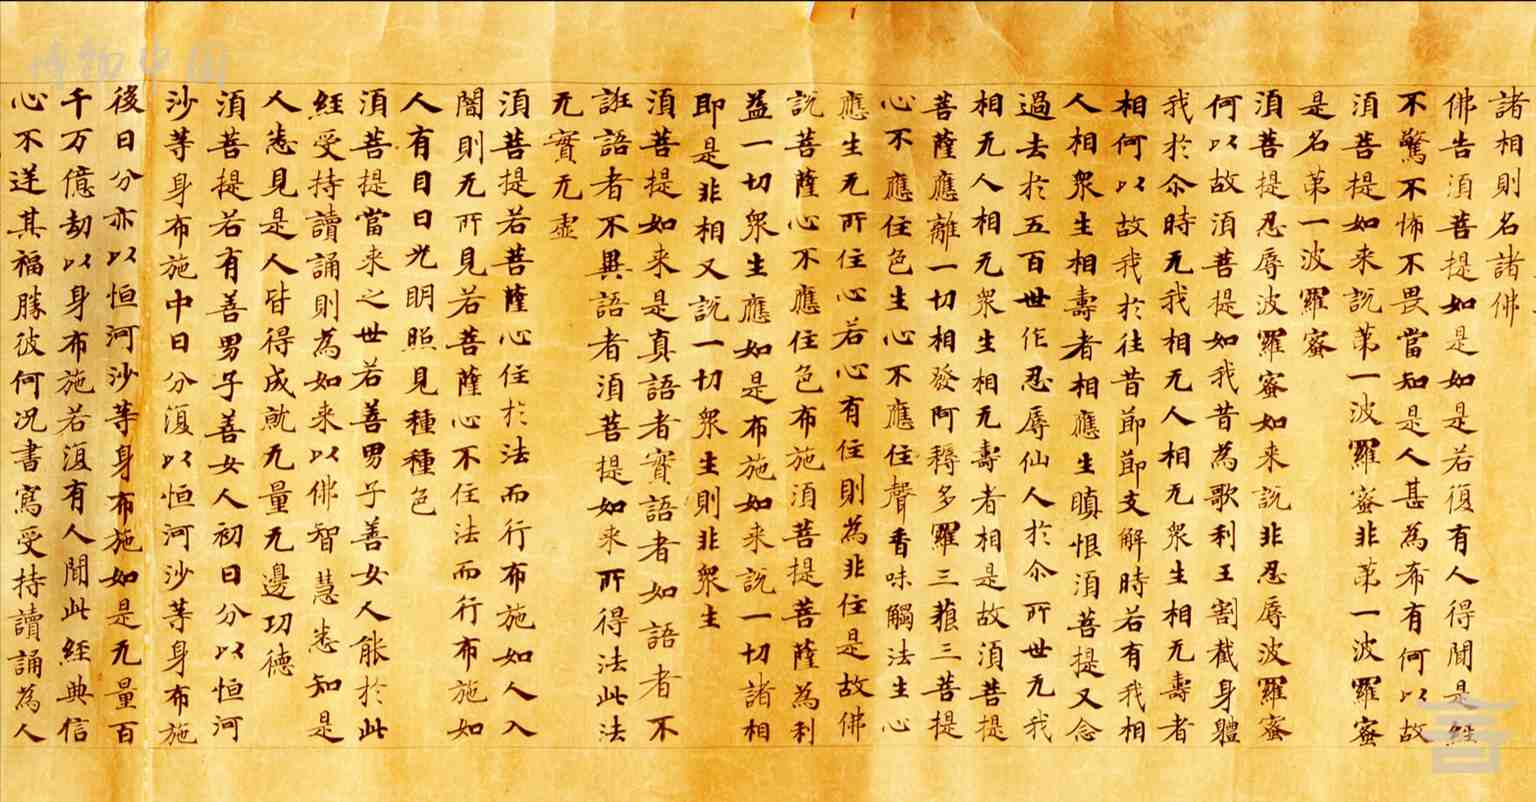 博物中国
諸相則名諸佛
佛告須菩提如是如是若復有人得聞是經
不驚不怖不畏當知是人甚為希有何以故
須菩提如来說苐一波羅蜜非苐一波羅蜜
是名苐一波羅蜜
須菩提忍辱波羅蜜如来說非忍辱波羅蜜
何以故須菩提如我昔為歌利王割截身體
我於尒時无我相无人相无衆生相无壽者
相何以故我於往昔節節支解時若有我相
人相衆生相壽者相應生瞋恨須菩提又念
過去於五百世作忍辱仙人於尒所世无我
相无人相无衆生相无壽者相是故須菩提
菩薩應離一切相發阿耨多羅三藐三菩提
心不應住色生心不應住聲香味觸法生心
應生无所住心若心有住則為非住是故佛
說菩薩心不應住色布施須菩提菩薩為利
益一切衆生應如是布施如来說一切諸相
即是非相又說一切衆生則非衆生
須菩提如来是真語者實語者如語者不
誑語者不異語者須菩提如来所得法此法
无實无虛
須菩提若菩薩心住於法而行布施如人入
闇則无所見若菩薩心不住法而行布施如
人有目日光明照見種種色
須菩提當来之世若善男子善女人能於此
經受持讀誦則為如来以佛智慧悉知是
人悉見是人皆得成就无量无邊功德
須菩提若有善男子善女人初日分以恒河
沙等身布施中日分復以恒河沙等身布施
後日分亦以恒河沙等身布施如是无量百
千万億劫以身布施若復有人聞此經典信
心不逆其福勝彼何況書寫受持讀誦為人
言